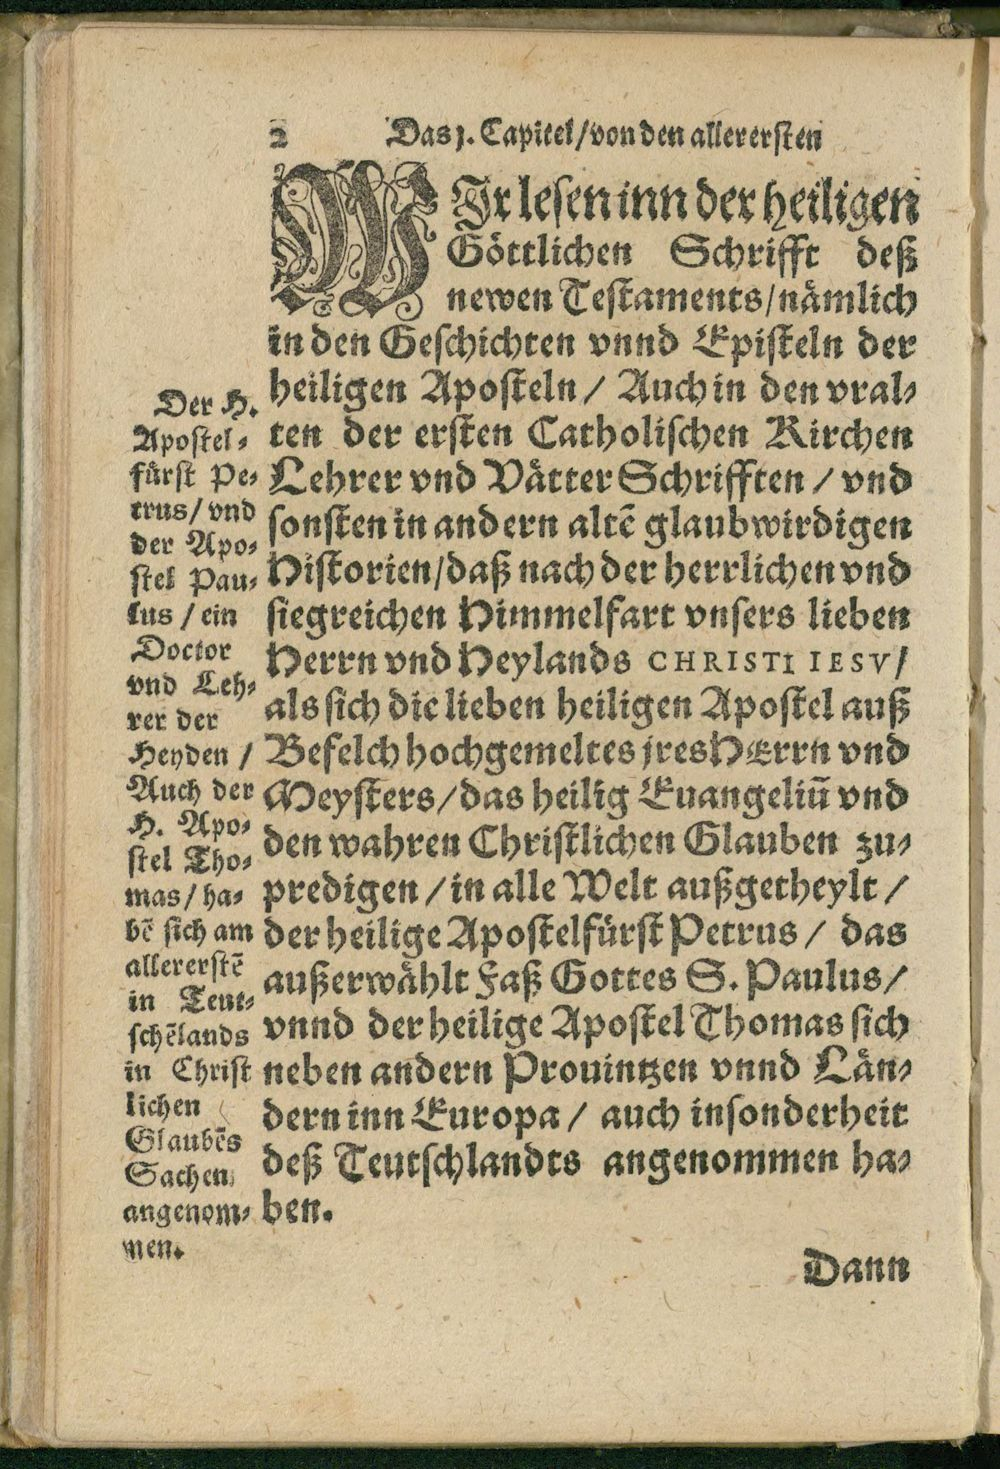 2 Das j. Capitel / von den allerersten
WIr lesen inn der heiligen
Göttlichen Schrifft deß
newen Testaments / nämlich
in den Geschichten vnnd Episteln der
heiligen Aposteln / Auch in den vral⸗
ten der ersten Catholischen Kirchen
Lehrer vnd Vätter Schrifften / vnd
sonsten in andern altẽ glaubwirdigen
Historien / daß nach der herrlichen vnd
siegreichen Himmelfart vnsers lieben
Herrn vnd Heylands CHRISTI IESV /
als sich die lieben heiligen Apostel auß
Befelch hochgemeltes jres HErrn vnd
Meysters / das heilig Euangeliũ vnd
den wahren Christlichen Glauben zu⸗
predigen / in alle Welt außgetheylt /
der heilige Apostelfürst Petrus / das
außerwählt Faß Gottes S. Paulus /
vnnd der heilige Apostel Thomas sich
neben andern Prouintzen vnnd Län⸗
dern inn Europa / auch insonderheit
deß Teutschlandts angenommen ha⸗
ben.
Der H.
Apostel⸗
fürst Pe⸗
trus / vnd
der Apo⸗
stel Pau⸗
lus / ein
Doctor
vnd Leh⸗
rer der
Heyden /
Auch der
H. Apo⸗
stel Tho⸗
mas / ha⸗
bẽ sich am
allererstẽ
in Teut⸗
schẽlands
in Christ
lichen
Glaubẽs
Sachen
angenom⸗
men.
Dann